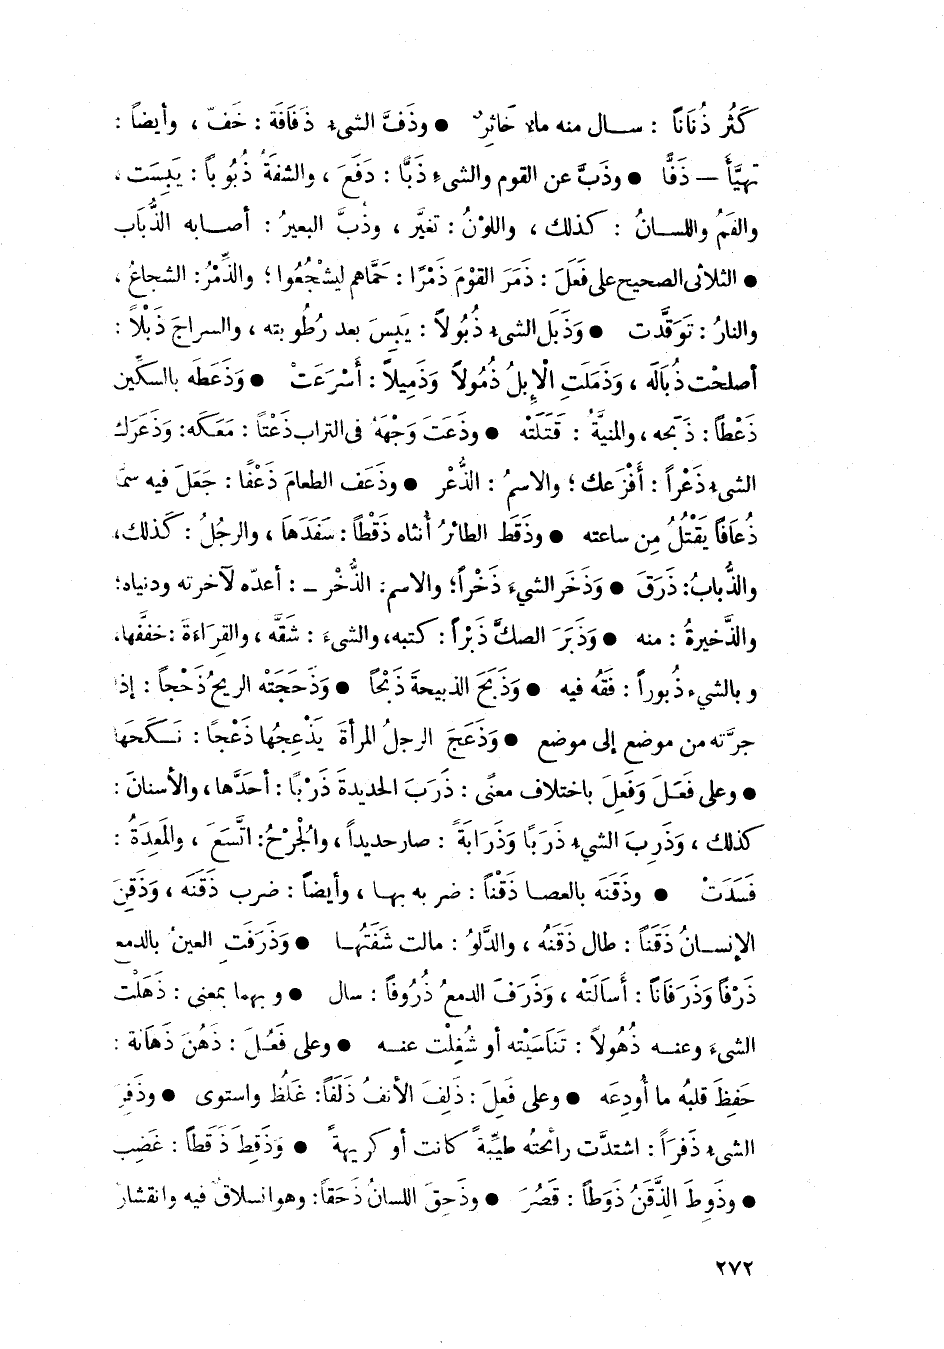 كَثُر ذُنَاناً : سـال منه ماء خَاثِرٌ ● وذَفَّ الشىء ذَفَافَة : خَفّ ، وأيضاً :
تهيَّأَ — ذَفًّا ● وذَبَّ عن القوم والشىءِ ذَبًّا : دَفَعَ ، والشفَةُ ذُبُوباً : يَبِسَت ،
والفَمُ واللسـانُ : كذلك ، واللوْنُ : تغيَّر ، وذُبَّ البعيرُ : أصـابه الذُّبَاب
● الثلاثى الصحيح على فَعَلَ : ذَمَرَ القوْمَ ذَمْرًا : حَمَّاهم ليشْجُعُوا ؛ والذِّمْرُ : الشجاعُ ،
والنارُ : تَوَقَّدت ● وَذَبَل الشىء ذُبُولاً : يَبِسَ بعد رُطُوبته ، والسراجَ ذَبْلاً :
أصلحْت ذُبَالَه ، وَذَمَلَتِ الْإِبلُ ذُمُولاً وَذَمِيلاً : أَسْرَعَتْ ● وَذَعَطَه بالسكِّين
ذَعْطاً : ذَبَحه ، والمنيَّةُ : قَتَلَتْه ● وذَعَتَ وَجْهَهُ فى التراب ذَعْتاً : مَعَكَه : وَذَعَرَك
الشىء ذَعْراً : أَفْزَعك ؛ والاسمُ : الذُّعْر ● وذعَف الطعامَ ذَعْفًا : جَعَلَ فيه سمًّا
ذُعَافاً يَقْتُلُ مِن ساعته ● وذَقَط الطائرُ أُنثاه ذَقْطاً : سَفَدَهَا ، والرجُلُ : كَذلك ،
والذُّبابُ : ذَرَقَ ● وَذَخَر الشيءَ ذَخْراً ؛ والاسم : الذُّخْر - : أعدّه لآخرته ودنياه ؛
والذَّخيرةُ : منه ● وَذَبَرَ الصكَّ ذَبْراً : كتبه ، والشيءَ : شقَّه ، والقِرَاءَةَ : خفَّفها ،
وبالشيء ذُبوراً : فَقُه فيه ● وَذَبَحَ الذبيحةَ ذَبْحًا ● وَذَحَجَتْه الريحُ ذَحْجاً : إذا
جرَّته من موضع إلى موضع ● وَذَعَجَ الرجلُ المرأةَ يَذْعِجُها ذَعْجًا : نَـكَحَها
● وعلى فَعَـلَ وَفَعِلَ باختلاف معنًى : ذَرَبَ الحديدةَ ذَرْبًا : أحَدَّها ، والأسنانَ :
كذلك ، وَذَرِبَ الشىء ذَرَبًا وَذَرَابَةً : صار حديداً ، والْجُرْحُ : اتَّسَعَ ، والمَعِدَةُ :
فَسَدَتْ ● وذَقَنَه بالعصـا ذَقْناً : ضربه بهـا ، وأيضاً : ضرب ذَقَنَه ، وَذَقِنَ
الإنسـانُ ذَقَناً : طال ذَقَنُه ، والدَّلوُ : مالت شَفَتُهـا ● وَذَرَفَت العينُ بالدمع
ذَرْفًا وَذَرَفَاناً : أَسَالَتْه ، وَذَرَفَ الدمعُ ذُرُوفاً : سال ● وبهما بمعنى : ذَهَلْت
الشىءَ وعنـه ذُهُولاً : تَنَاسَيْته أو شُغِلْت عنـه ● وعلى فَعُـلَ : ذَهُنَ ذَهَانة :
حَفِظَ قلبُه ما أُودِعَه ● وعلى فَعِلَ : ذَلِفَ الأنفُ ذَلَفًا : غَلُظ واستوى ● وذَفِرَ
الشىء ذَفَراً : اشتدَّت رائحتُه طيِّبةً كانت أو كريهةً ● وَذَقِطَ ذَقَطاً : غَضِب
● وذَوِطَ الذَّقَنُ ذَوَطاً : قَصُرَ ● وذَحِقَ اللسانُ ذَحَقاً : وهو انسلاقٌ فيه وانقشارٌ
٢٧٢